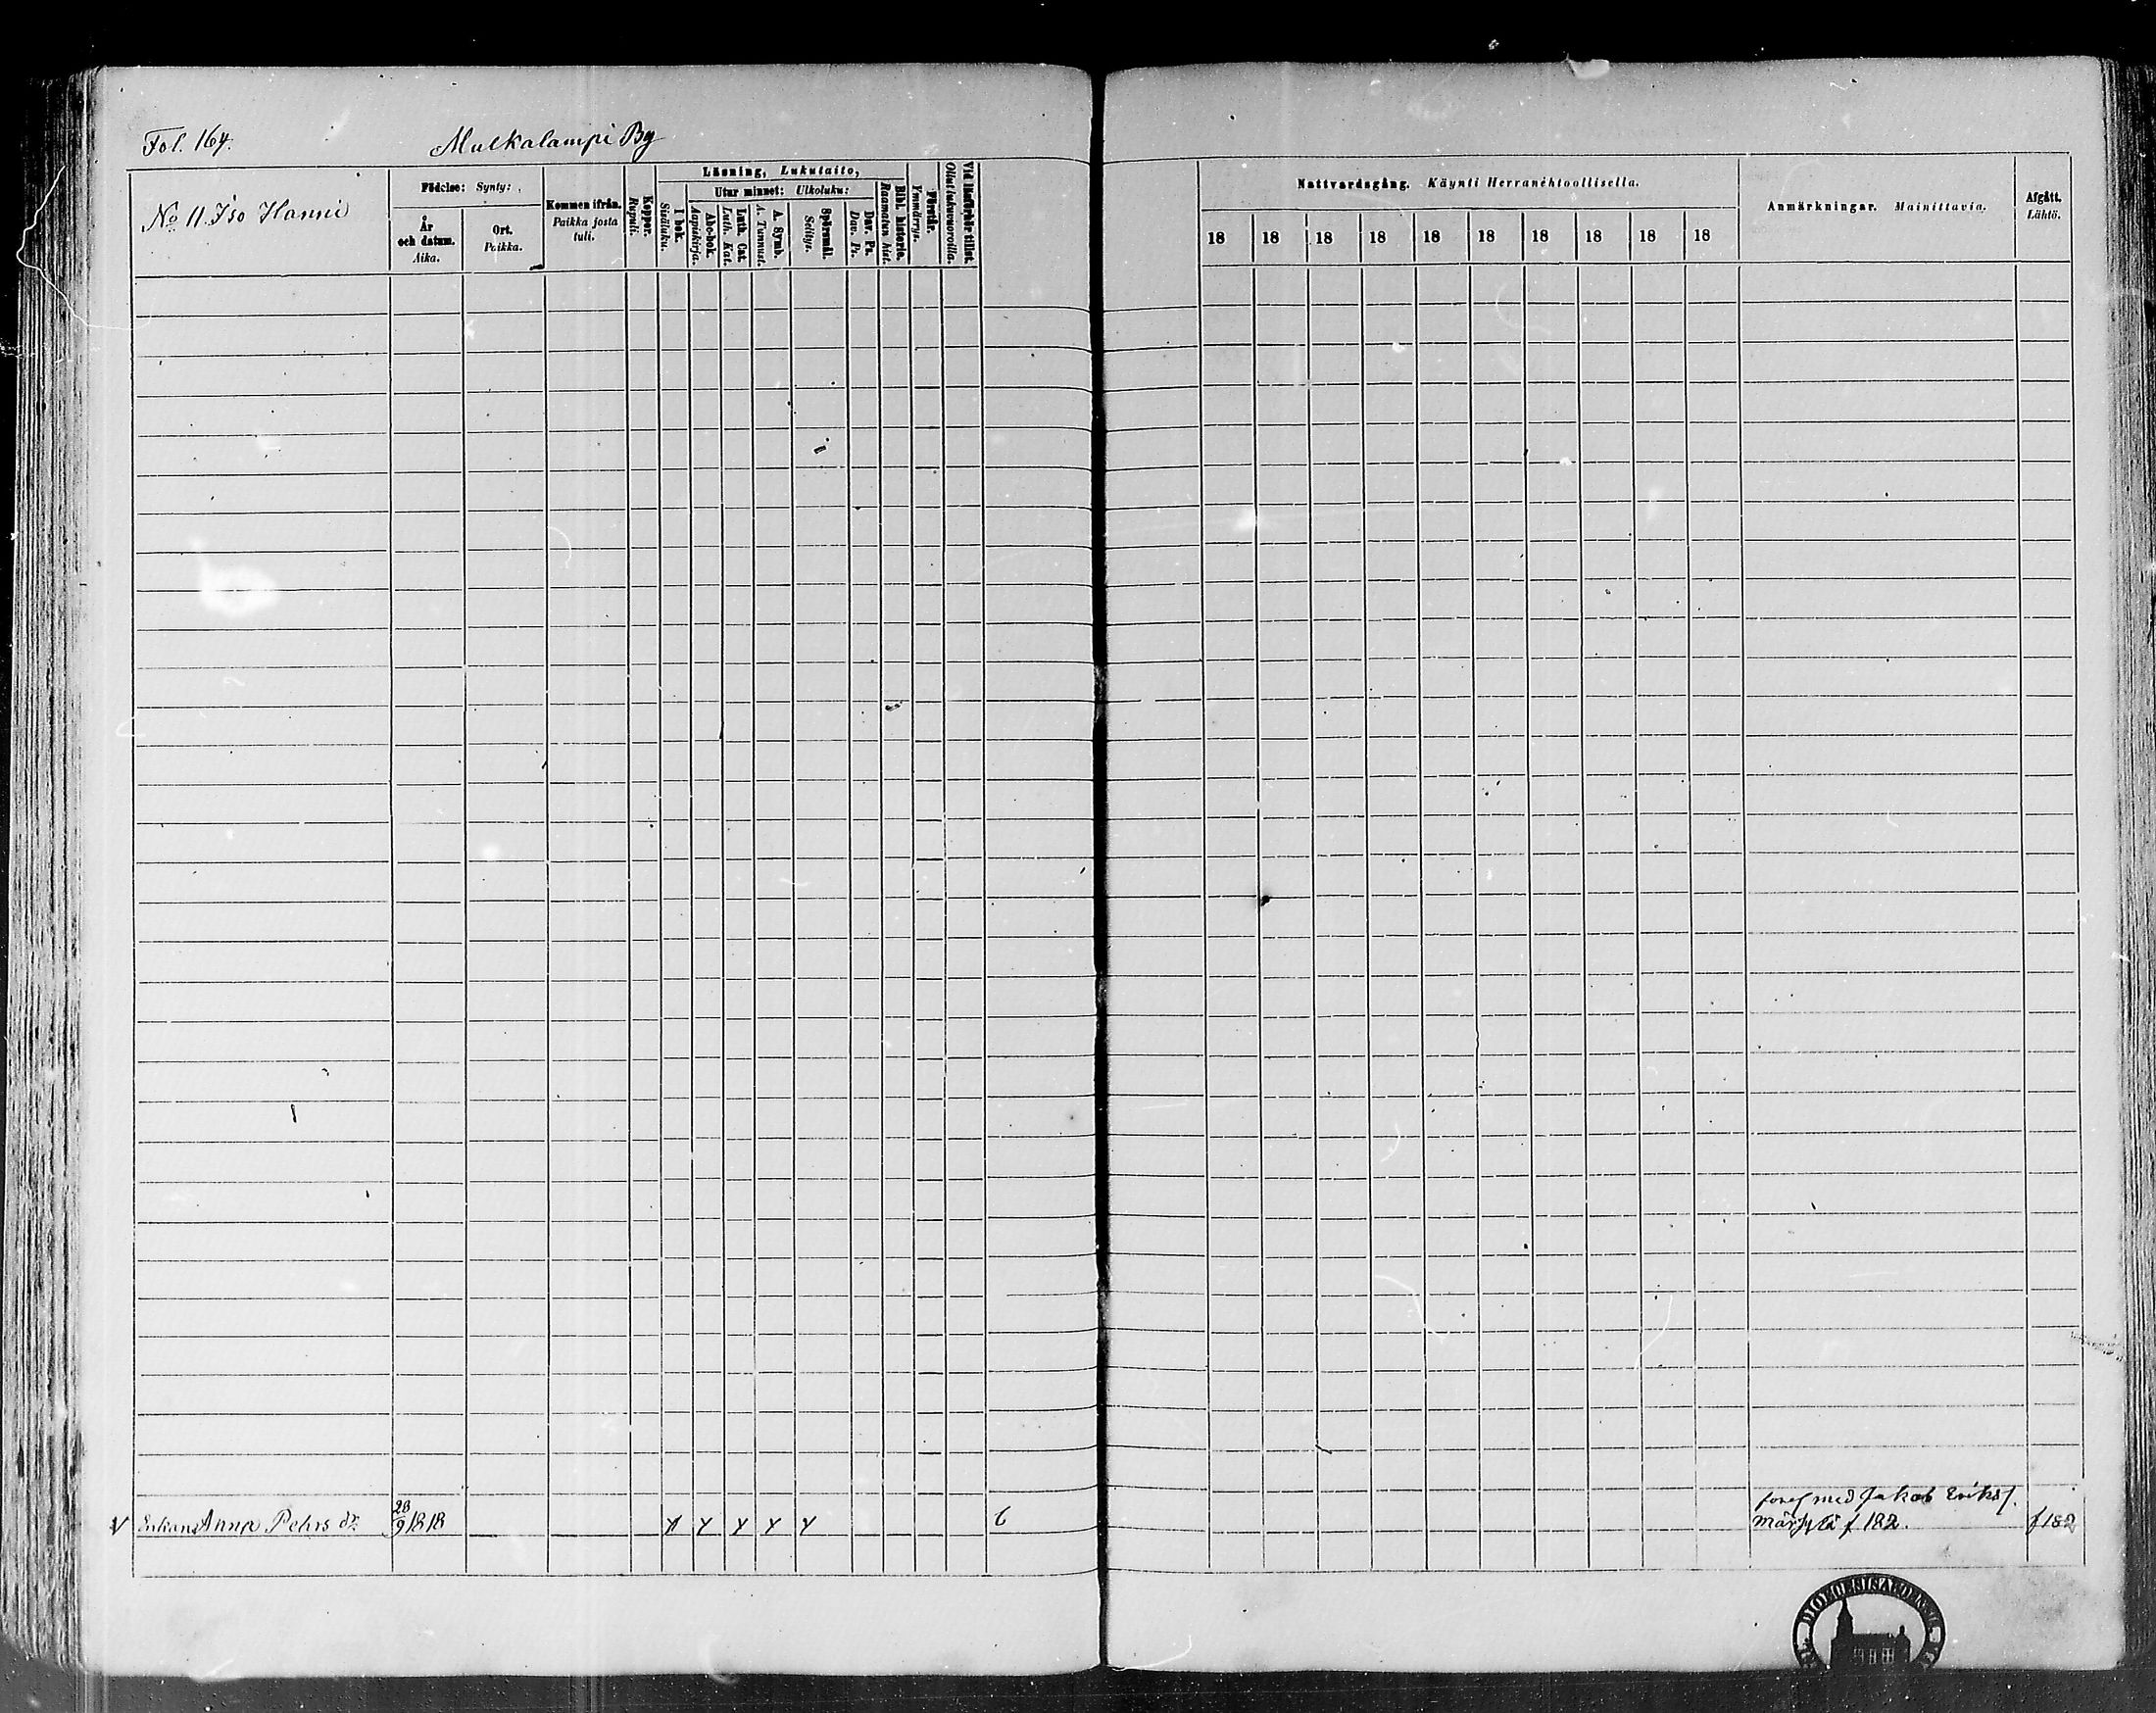 Fol. 164.
Mulkalampi By
No 11. Iso Hanni
Födelse: Synty:
År och datum. Aika.
Ort. Paikka.
Kommen ifrån. Paikka josta tuli.
Koppor. Rupuli.
Läsning, Lukutaito,
I bok. Sisäluku.
Utur minnet: Ulkoluku:
Abc-bok. Aapiskirja.
Luth. Cat. Luth. Kat.
A. Symb. A. Tunnust.
Spörsmål. Selitys.
Dav. Ps. Dav. Ps.
Bibl. historie. Raamatun hist.
Förstår. Ymmärrys.
Vid läsförhör tillst. Ollut lukuvuoroilla.
Nattvardsgång. Käynti Herranehtoollisella.
18 18 18 18 18 18 18 18 18 18
Anmärkningar. Mainittavia.
Afgått. Lähtö.
med Jakob Eriks
V Enkan Anna Pehrs dr. 28/9 1818 x y y y y 6 f 182. f 182
DIOECESIS ABOENSIS